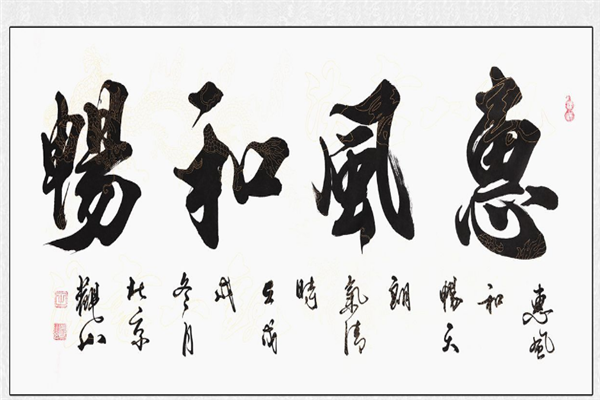 惠風和暢
惠風
和
暢天
朗
氣清
時
在戊
戌
冬月
於京